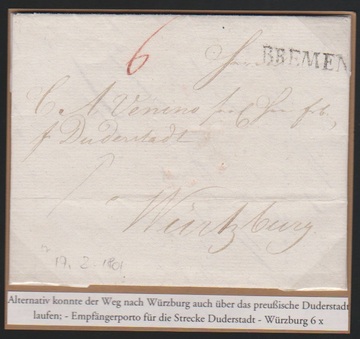 6
BREMEN
C A Venino
p Duderstadt
Würtzburg.
17. 2. 1801
Alternativ konnte der Weg nach Würzburg auch über das preußische Duderstadt
laufen; - Empfängerporto für die Strecke Duderstadt - Würzburg 6 x